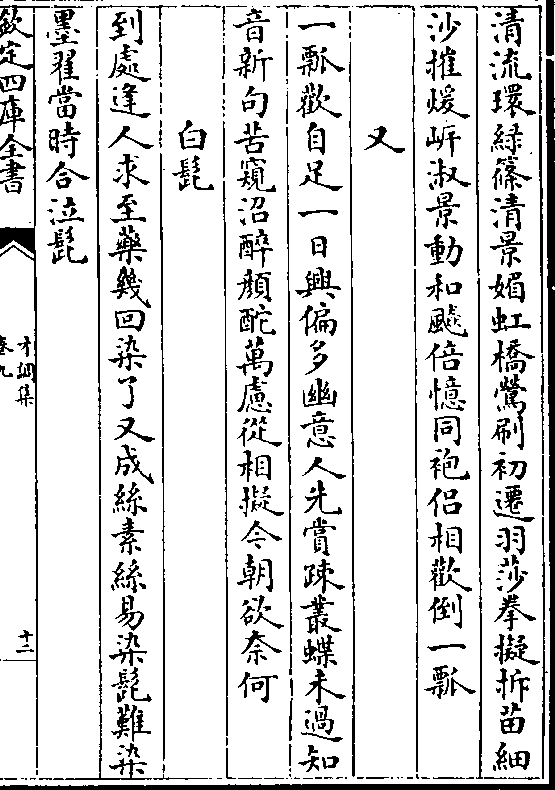 清流環緑篠清景媚虹橋鶯刷初遷羽莎拳擬拆苗細
沙摧煖岓淑景動和飈倍憶同袍侣相歡倒一瓢
又
一瓢歡自足一日興偏多幽意人先賞疎叢蝶未過知
音新句苦窺沼醉顔酡萬慮從相擬今朝欲奈何
白髭
到處逢人求至藥幾回染了又成絲素絲易染髭難染
墨翟當時合泣髭
欽定四庫全書
卷九
十二